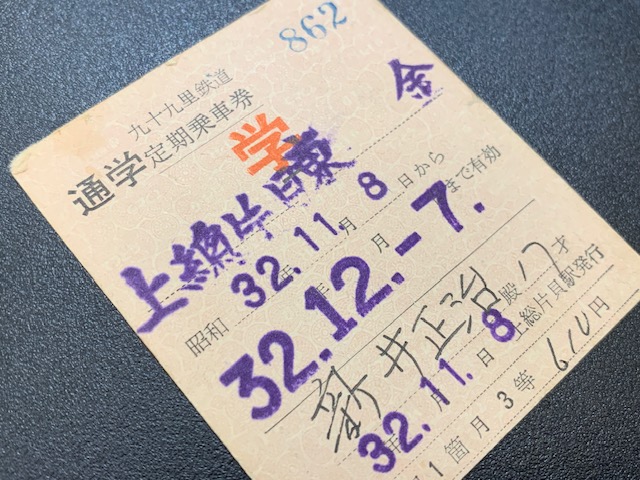 862
九十九里鉄道
通学定期乗車券
学
金
上總片貝 東
昭和 32年11月8日から
32.12.-7.まで有効
新井正治殿 17才
32年11月8日 上総片貝駅発行
1箇月 3等 610円